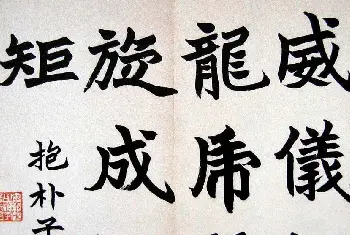 威儀
龍虎
旋成
矩
抱朴子